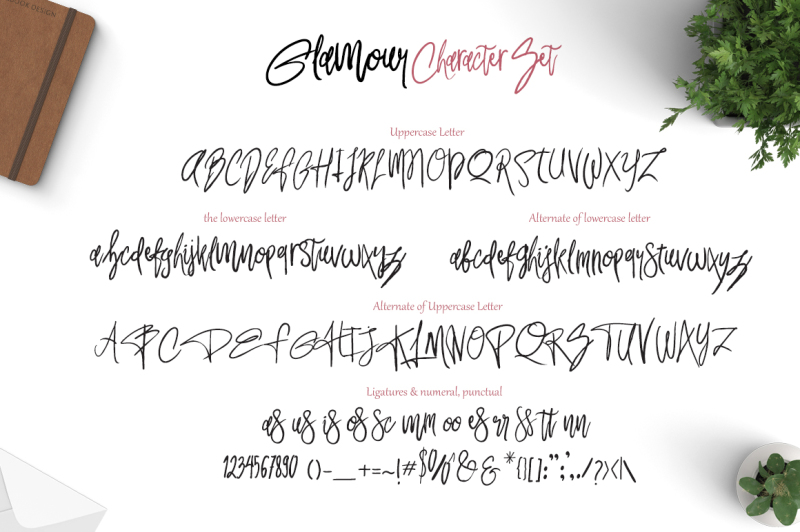 BOOK DESIGN
Glamour Character Set
Uppercase Letter
ABCDEFGHIJKLMNOPQRSTUVWXYZ
the lowercase letter
abcdefghijklmnopqrstuvwxyz
Alternate of lowercase letter
abcdefghijklmnopqrstuvwxyz
Alternate of Uppercase Letter
ABCDEFGHIJKLMNOPQRSTUVWXYZ
Ligatures & numeral, punctual
as us is os sc mm oo es rr ss tt nn
1234567890 ()-_+=~!#$%^&& *{}[]:";',./?><|\